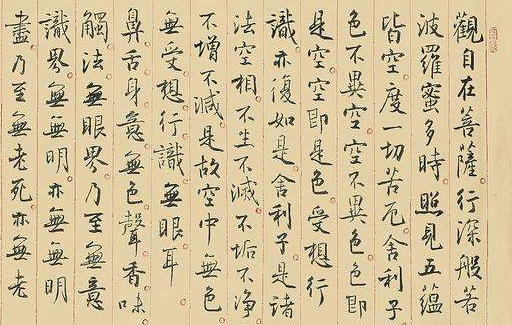 觀自在菩薩行深般若
波羅蜜多時照見五蘊
皆空度一切苦厄舍利子
色不異空空不異色色即
是空空即是色受想行
識亦復如是舍利子是諸
法空相不生不滅不垢不净
不增不減是故空中無色
無受想行識無眼耳
鼻舌身意無色聲香味
觸法無眼界乃至無意
識界無無明亦無無明
盡乃至無老死亦無老